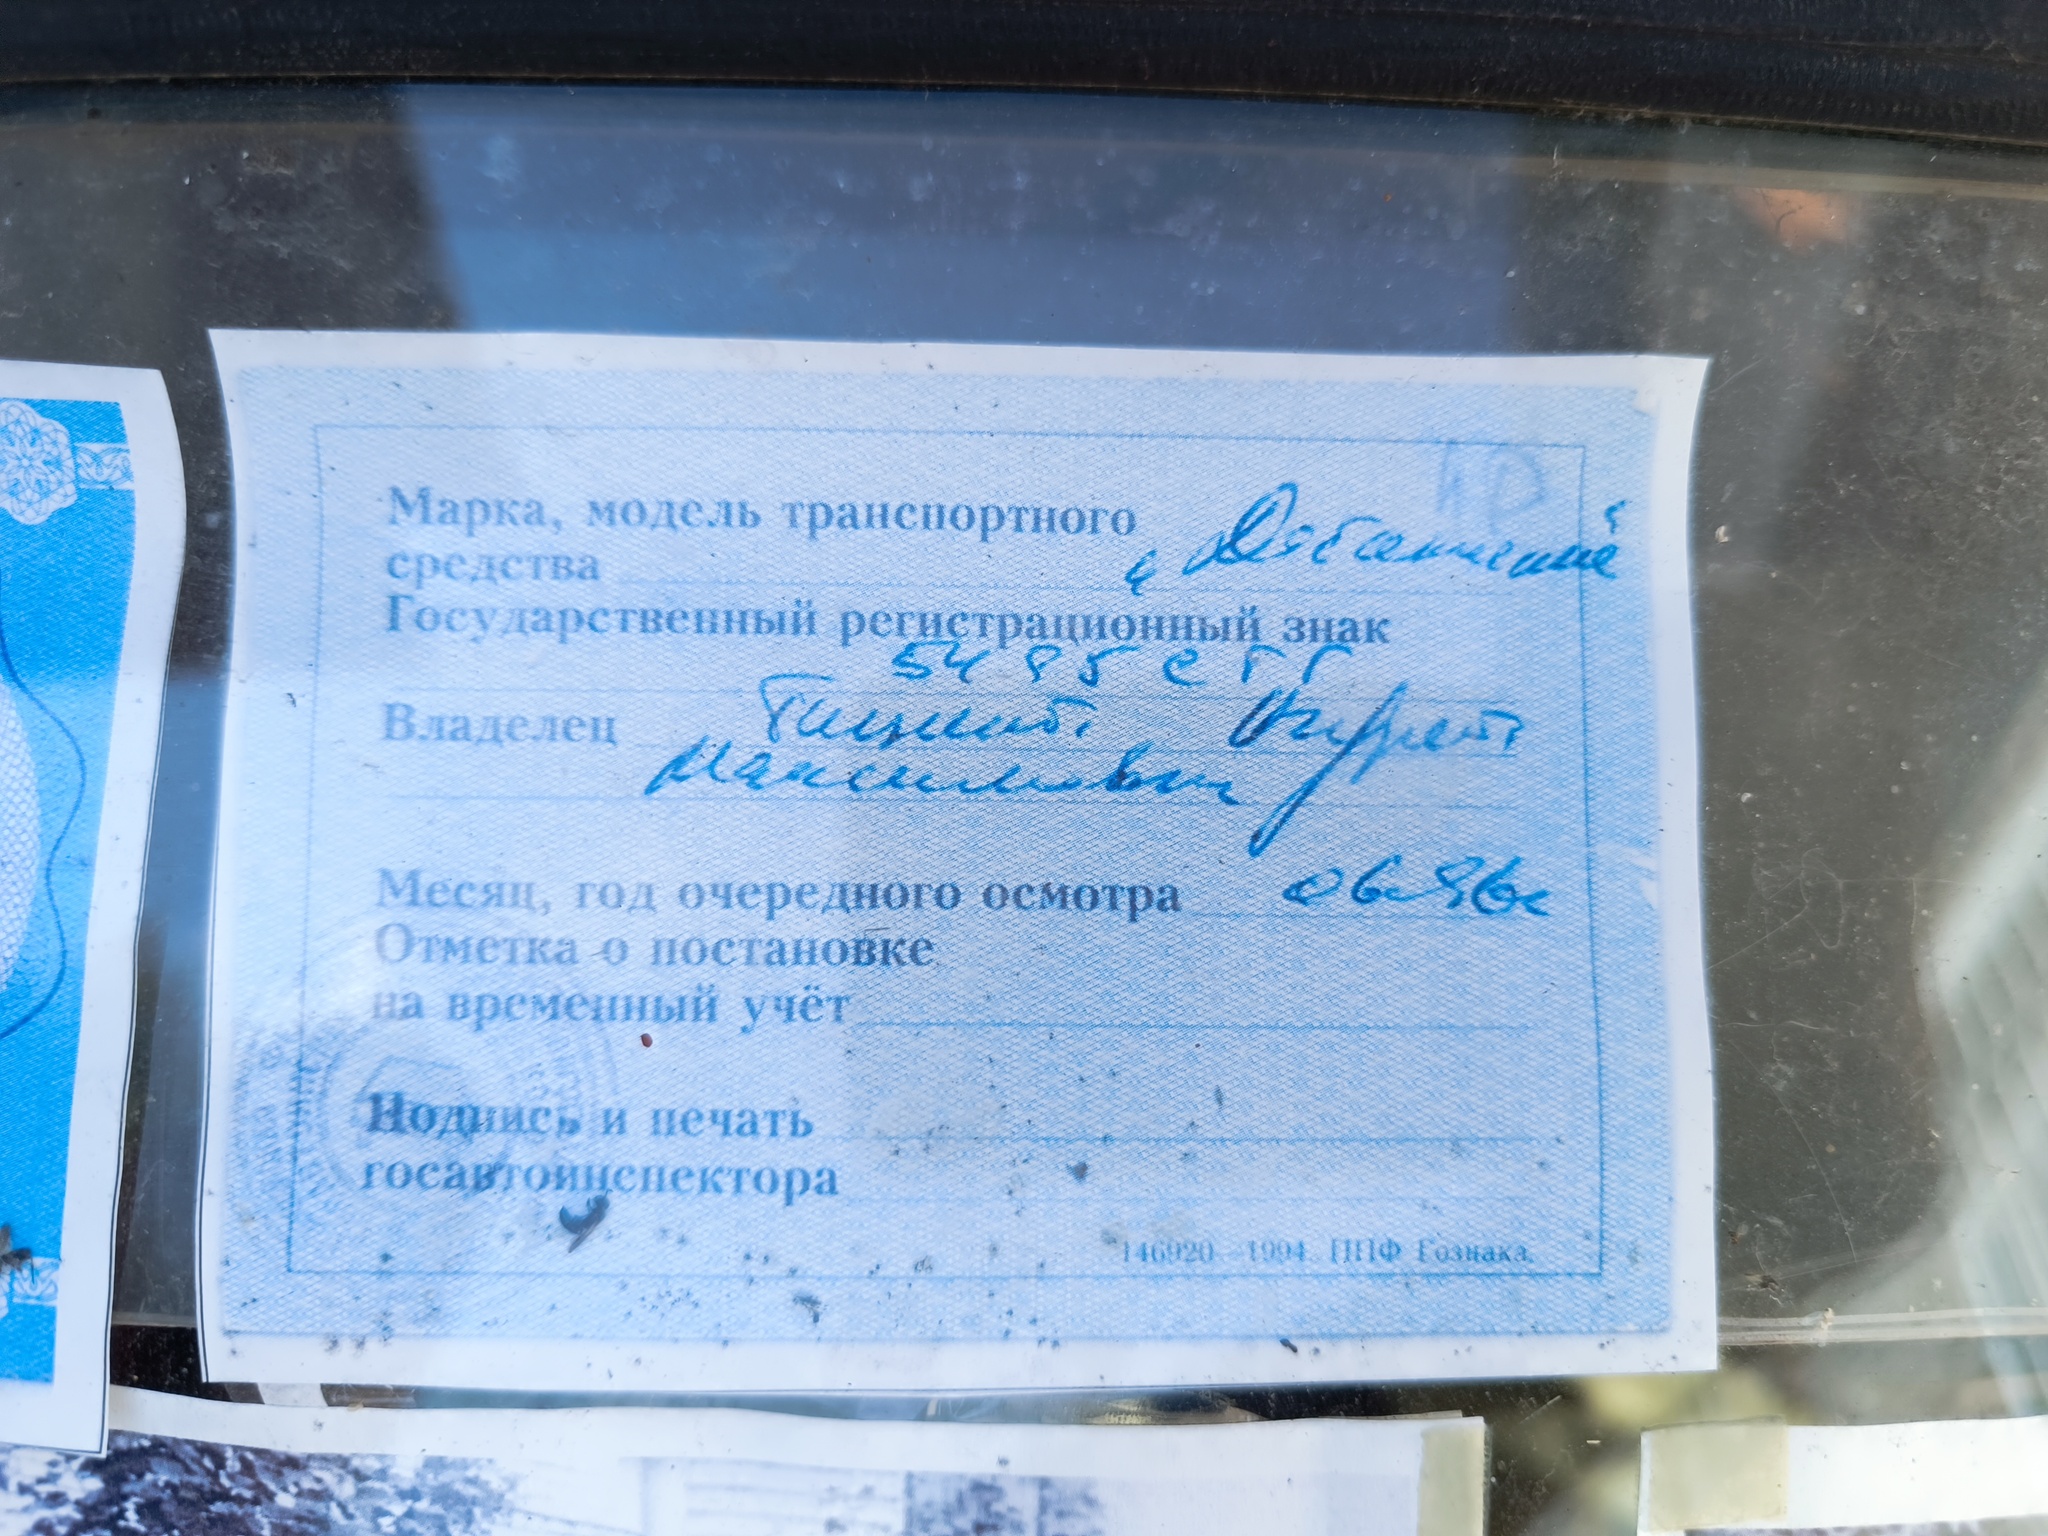 Марка, модель транспортного
средства
Государственный регистрационный знак
Владелец
Максимович
Месяц, год очередного осмотра 06.96г
Отметка о постановке
на временный учёт
Подпись и печать
госавтоинспектора
146920. 1994. ППФ Гознака.